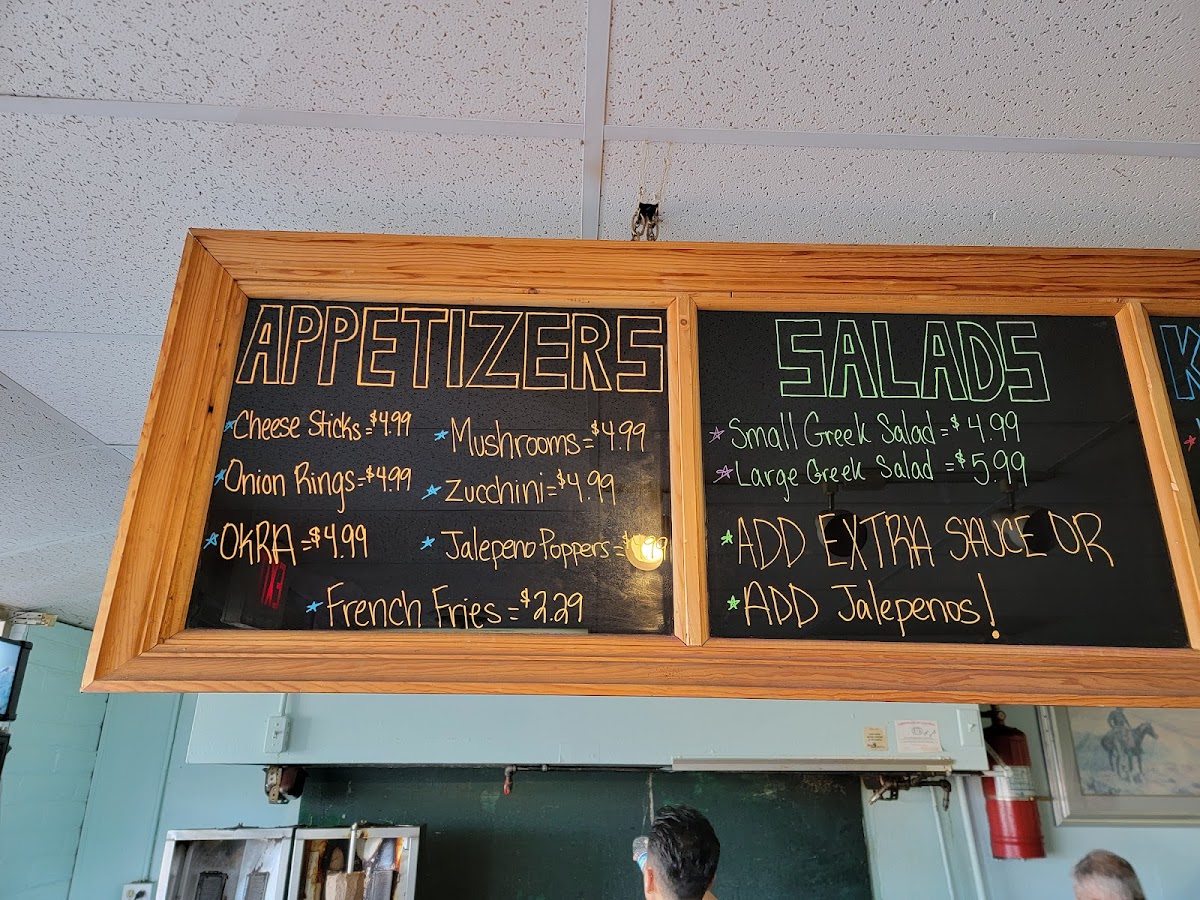 APPETIZERS
Cheese Sticks=$4.99
Onion Rings=$4.99
OKRA=$4.99
Mushrooms=$4.99
Zucchini=$4.99
Jalepeno Poppers=$
French Fries=$2.29
SALADS
Small Greek Salad=$4.99
Large Greek Salad=$5.99
ADD EXTRA SAUCE OR
ADD Jalepenos!
K